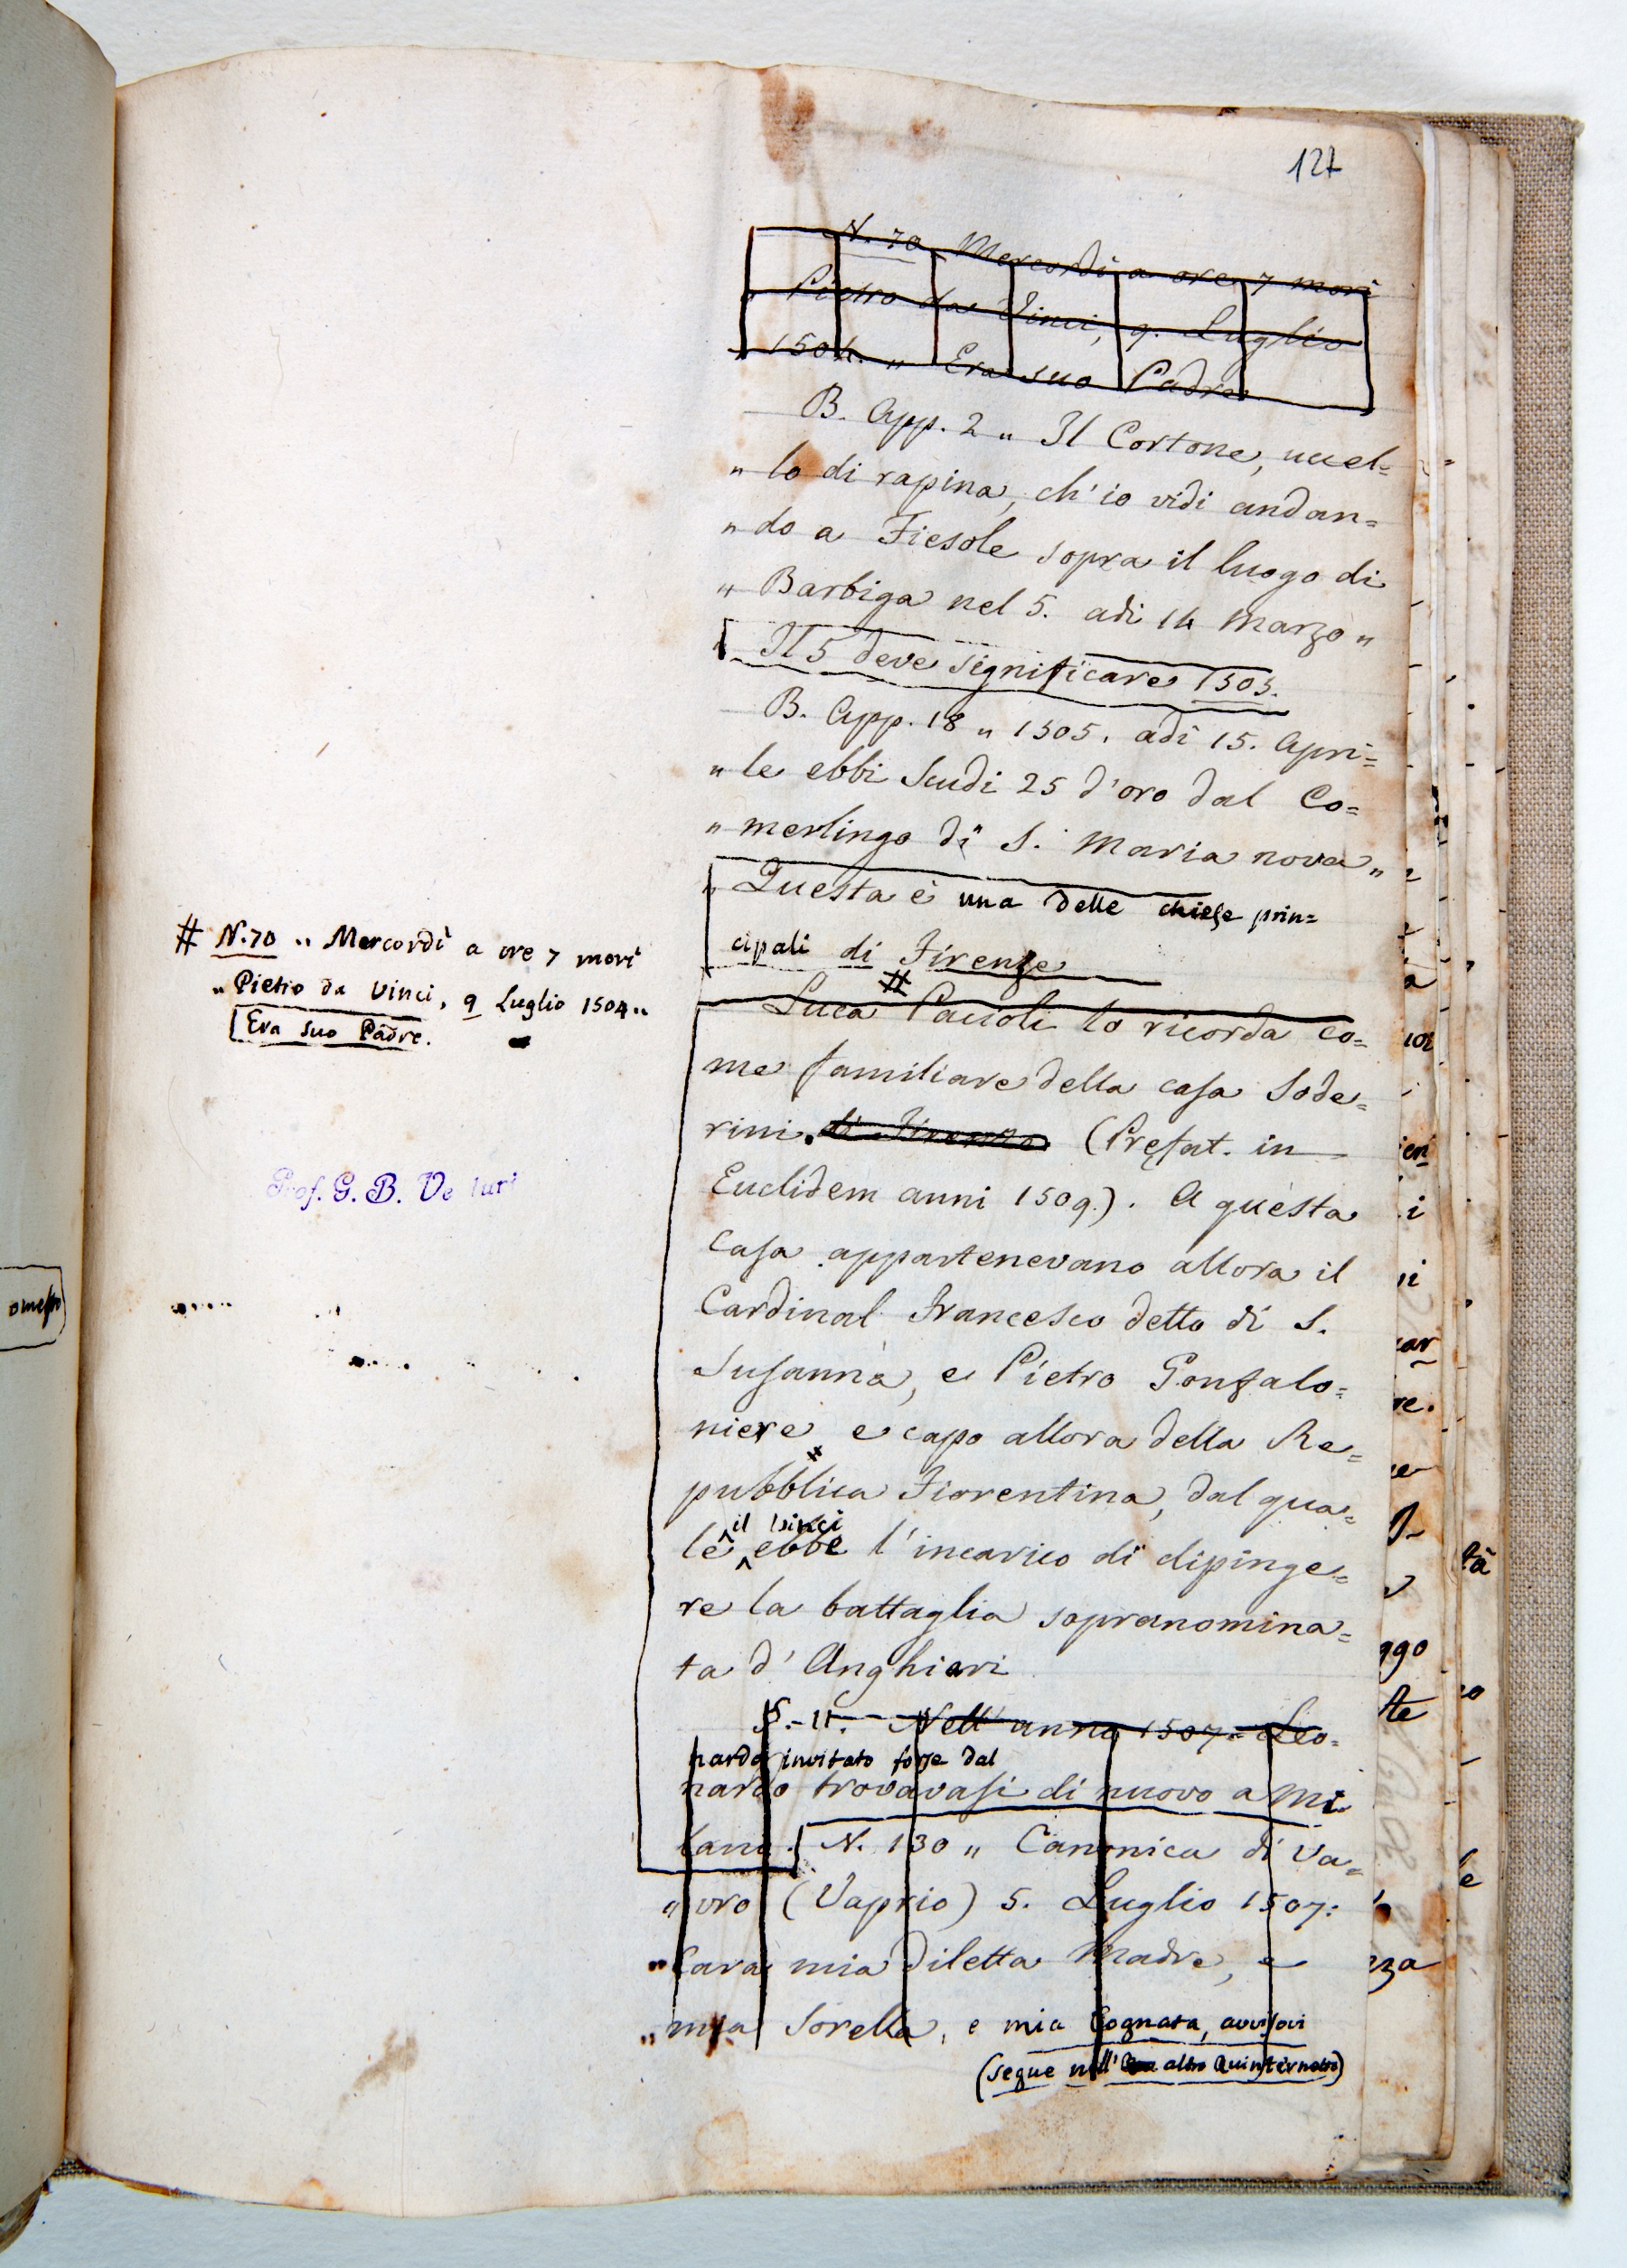 127
N. 70 Mercordi a ore 7 morì
" Pietro da Vinci, 9. Luglio
" 1504. " Era suo Padre
B. App. 2 " Il Cortone, uccel=
" lo di rapina, ch'io vidi andan=
" do a Fiesole sopra il luogo di
" Barbiga nel 5. adi 14 Marzo "
Il 5 deve significare 1505.
B. App. 18 " 1505. adi 15. Apri=
" le ebbi Scudi 25 d'oro dal Co=
" merlingo di S. Maria nova "
" Questa è una delle chiese prin=
cipali di Firenze
#
Luca Pacioli lo ricorda co=
me familiare della casa Sode=
rini. di Firenze (Prefat. in
Euclidem anni 1509.). A questa
Casa appartenevano allora il
Cardinal Francesco detto di S.
Susanna, e Pietro Gonfalo=
niere e capo allora della Re=
pubblica Fiorentina, dal qua=
il Vinci
le ebbe l'incarico di dipinge=
re la battaglia sopranomina=
ta d'Anghiari
§. 11. Nell'anno 1507. Leo=
nardo invitato forse dal
nardo trovavasi di nuovo a Mi
lano. N. 130 " Canonica di Va=
" vro (Vaprio) 5. Luglio 1507:
" Cara mia diletta Madre, e
" mia Sorella, e mia Cognata, avvisovi
(segue nell' altro Quinternetto)
# N. 70 " Mercordì a ore 7 morì
" Pietro da Vinci, 9 Luglio 1504 "
Era suo Padre.
Prof. G. B. Venturi
omesso